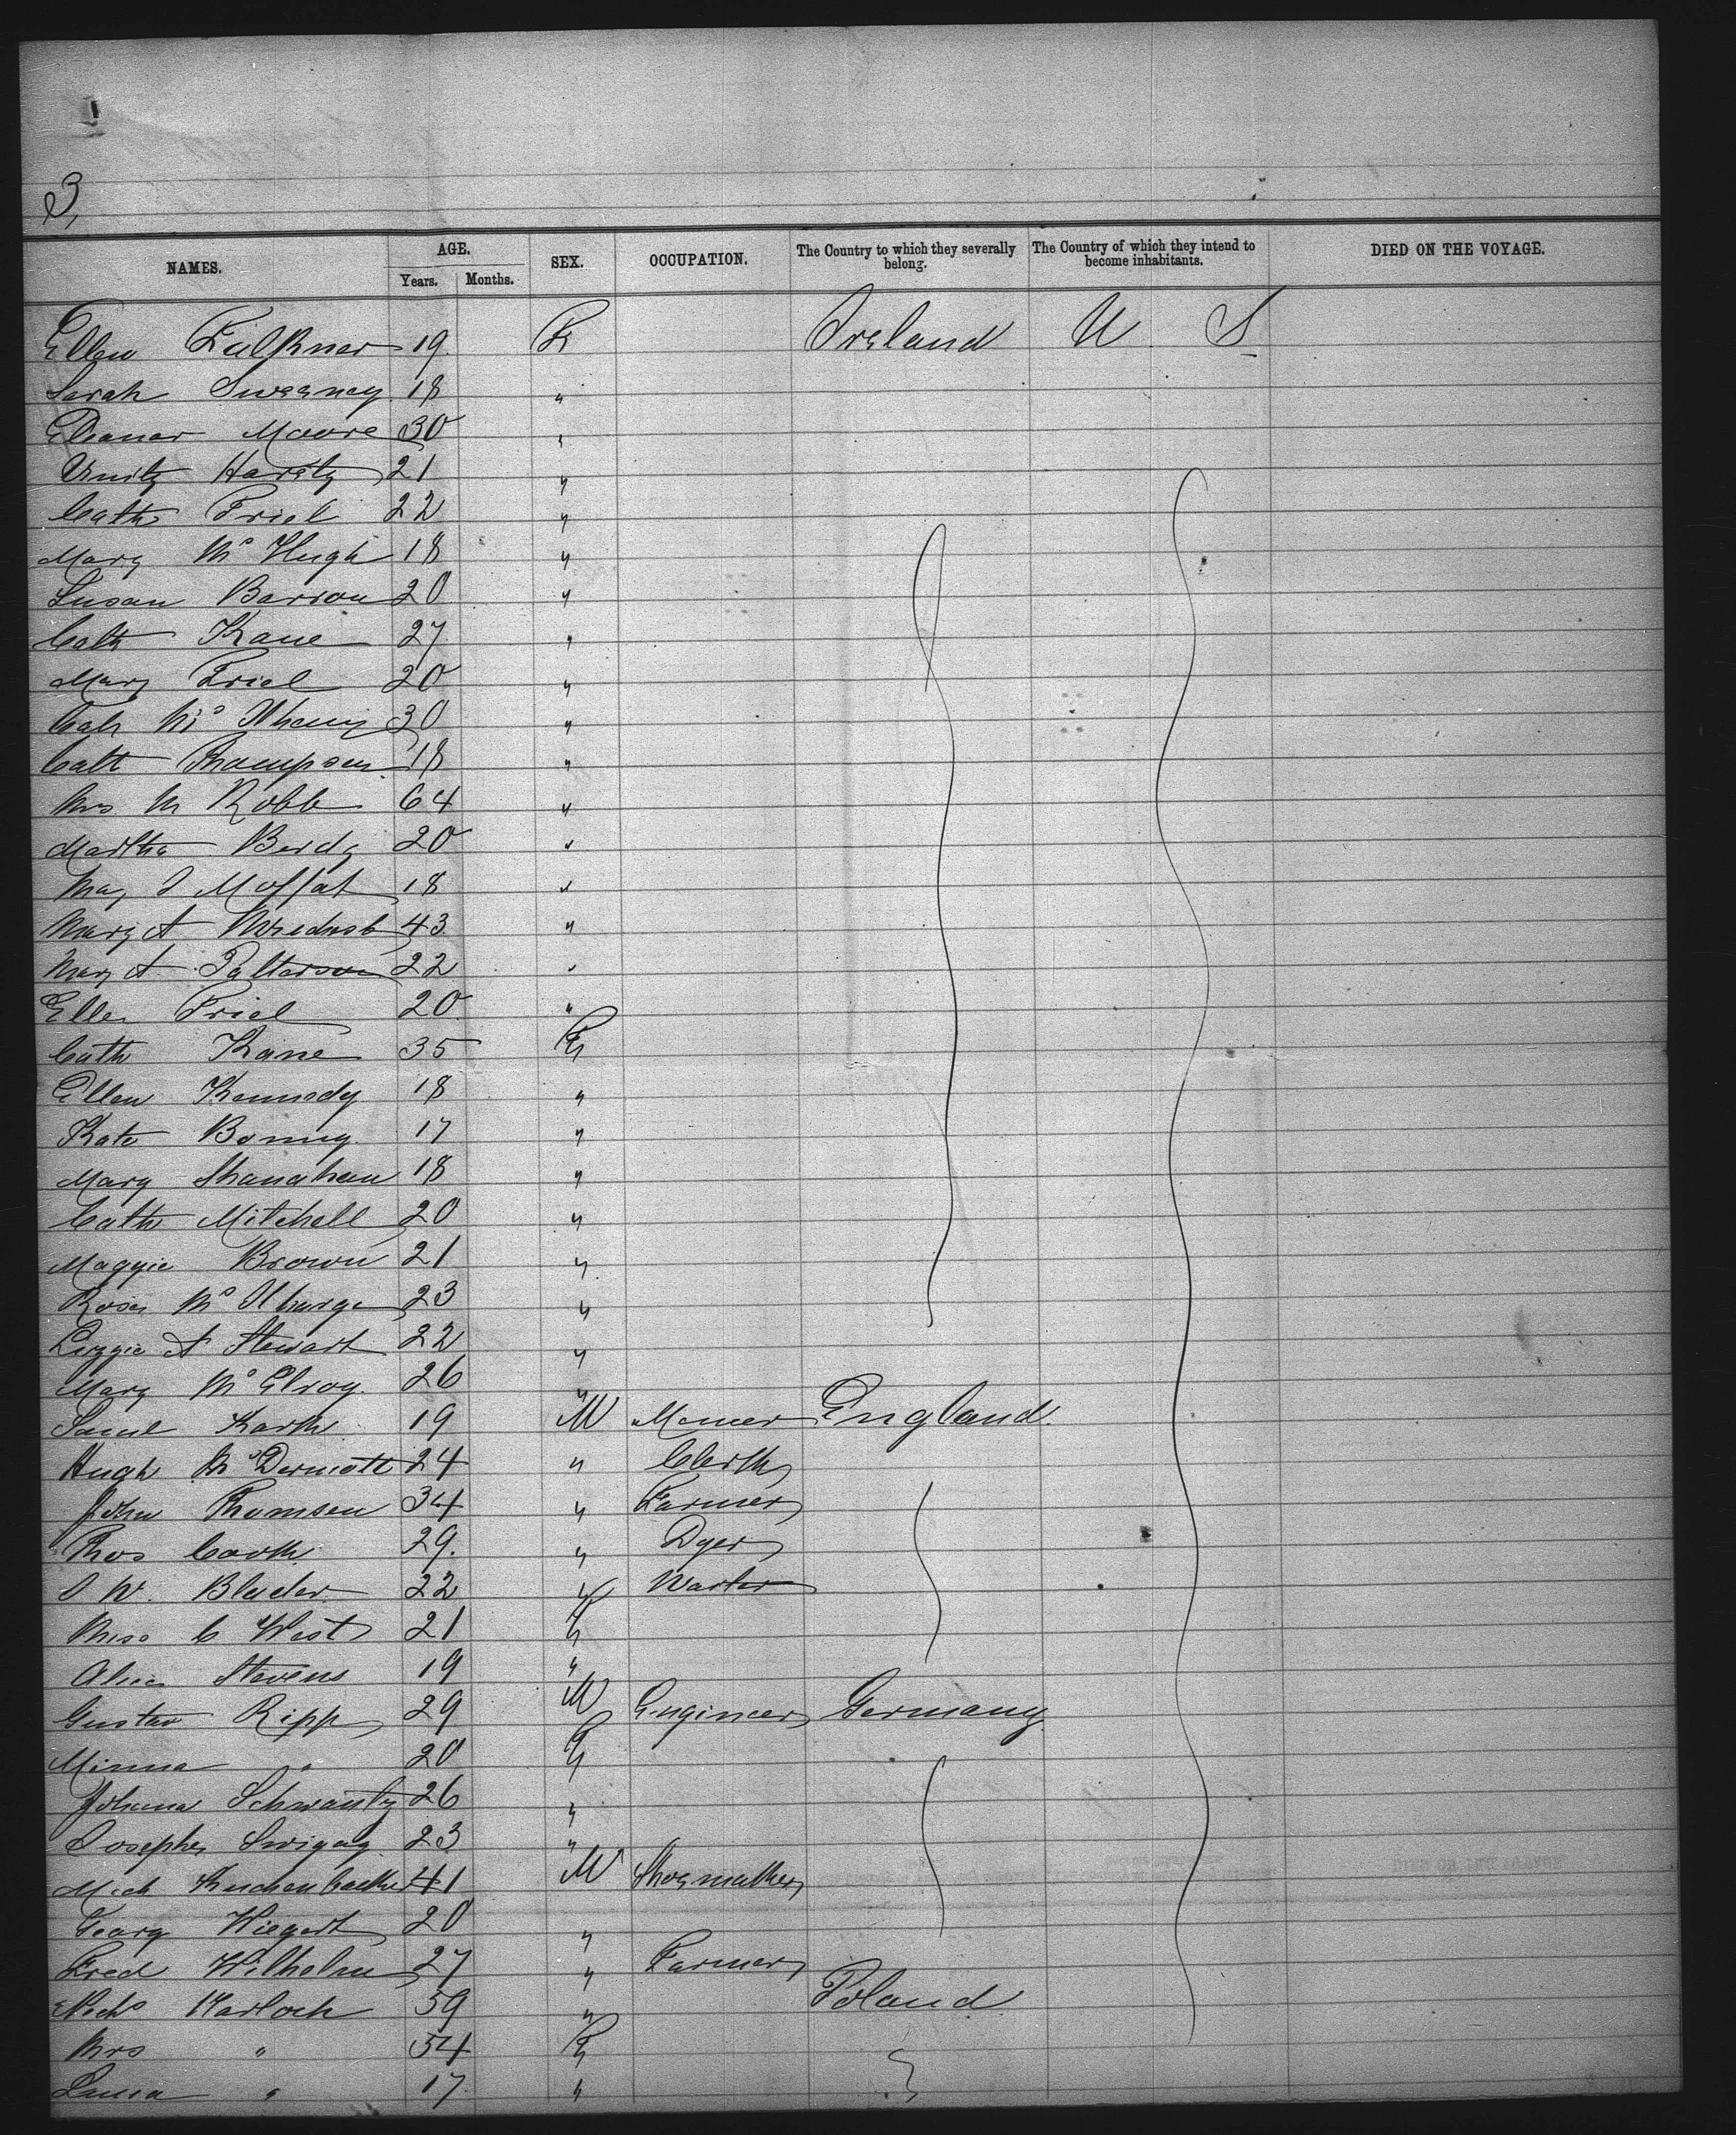 3
NAMES. AGE. Years. Months. SEX. OCCUPATION. The Country to which they severally belong. The Country of which they intend to become inhabitants. DIED ON THE VOYAGE.
Ellen Falkner 19 F Ireland U S
Sarah Sweeney 18 "
Eleanor Moore 30 "
Unity Harsty 21 "
Cath Friel 22 "
Mary McHugh 18 "
Susan Barron 20 "
Cath Kane 27 "
Mary Friel 20 "
Cath 30 "
Cath Thompson 18 "
Mrs M Robb 64 "
Martha 20 "
Mary J Moffat 18 "
Mary A 43 "
Mary A Patterson 22 "
Ellen Friel 20 "
Cath Kane 35 F
Ellen Kennedy 18 "
Kate 17 "
Mary Shanahan 18 "
Cath Mitchell 20 "
Maggie Brown 21 "
Rose 23 "
Lizzie A Stewart 22 "
Mary McElroy 26 "
Saml 19 M England
Hugh McDermott 24 " Clerk
John Thomsen 34 " Farmer
Thos 29 " Dyer
W. 22 "
Miss C West 21 F
Alice Stevens 19 "
Gustav Ripp 29 M Engineer Germany
Minna " 20 F
Johana Schwantz 26 "
23 "
Mich 41 M Shoemaker
Georg Wiegert 20 "
Fred Wilhelm 27 " Farmer
59 " Poland
Mrs " 54 F
" 17 "